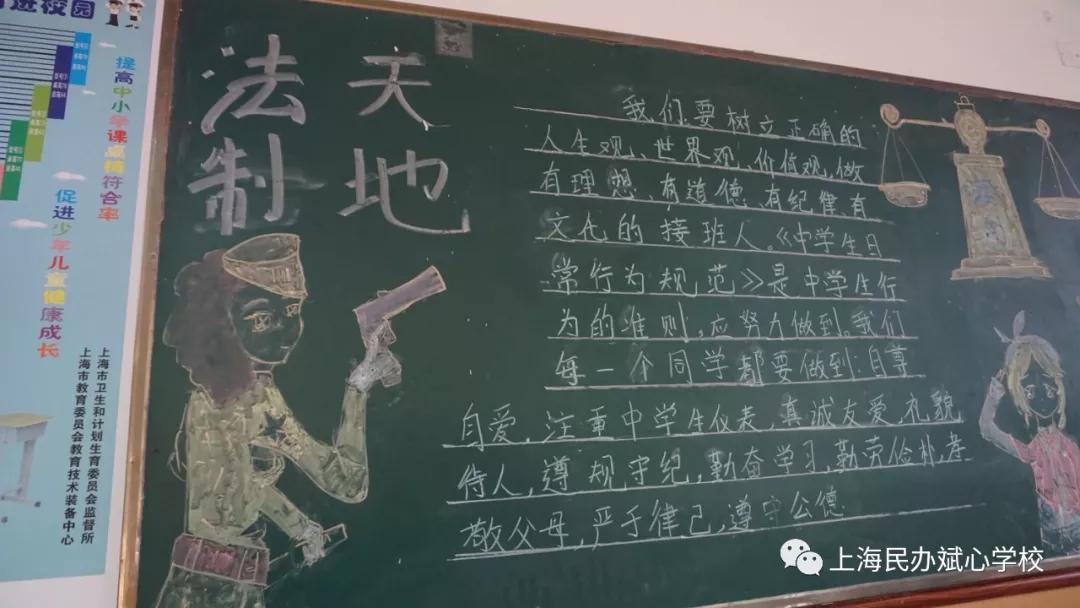 进校园
提高中小学课桌椅符合率
促进少年儿童健康成长
上海市卫生和计划生育委员会监督所
上海市教育委员会教育技术装备中心
法制
天地
我们要树立正确的
人生观、世界观、价值观,做
有理想、有道德、有纪律、有
文化的接班人。《中学生日
常行为规范》是中学生行
为的准则,应努力做到。我们
每一个同学都要做到:自尊
自爱,注重中学生仪表,真诚友爱,礼貌
待人,遵规守纪,勤奋学习,勤劳俭朴,孝
敬父母,严于律己,遵守公德
上海民办斌心学校